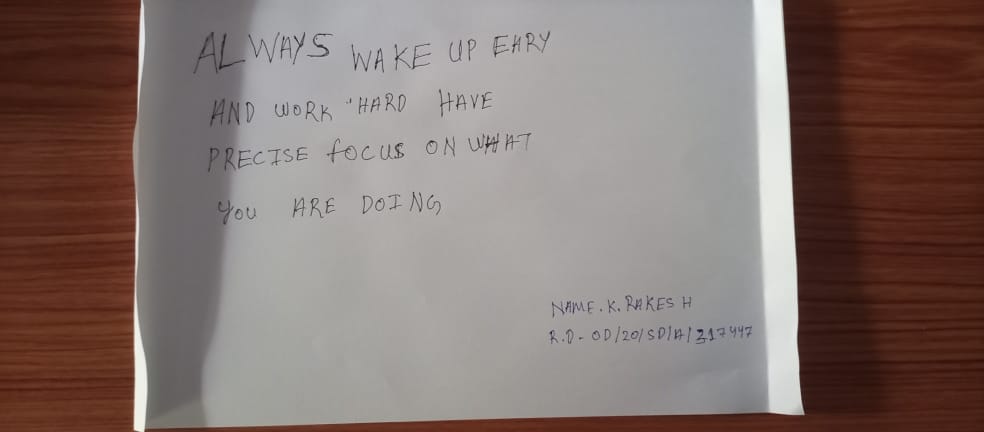 ALWAYS WAKE UP EARY
AND WORK "HARD HAVE
PRECISE focus ON WHAT
you ARE DOING
NAME. K. RAKESH
R.D - OD/20/SD/A/317447